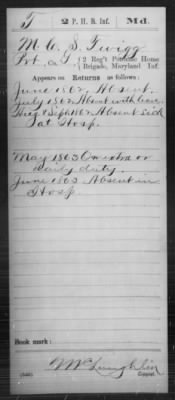 T 2 P. H. B. Inf. Md.
M. C. S. Twigg
Pvt., Co. I, 2 Reg't Potomac Home
Brigade, Maryland Inf.
Appears on
Returns as follows:
June 1862, Absent.
July 1862 Absent with leave
Aug & Sept 1862 Absent sick
at Hosp.
May 1863 On extra or
daily duty.
June 1863 Absent in
Hosp.
Book mark:
McLaughlin
Copyist.